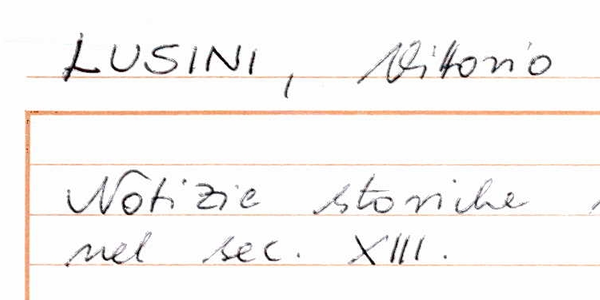 LUSINI, Vittorio
Notizie storiche
nel sec. XIII.